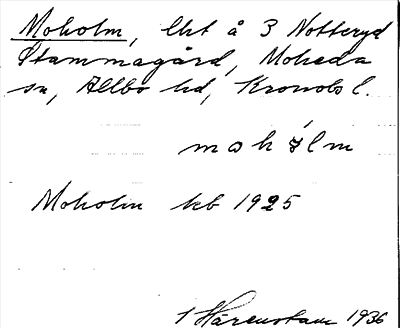 Moholm, lht å 3 Notteryd
Stammagård, Moheda
sn, Allbo hd, Kronobs l.
mohɷlm
Moholm kb 1925
1 Härenstam 1936